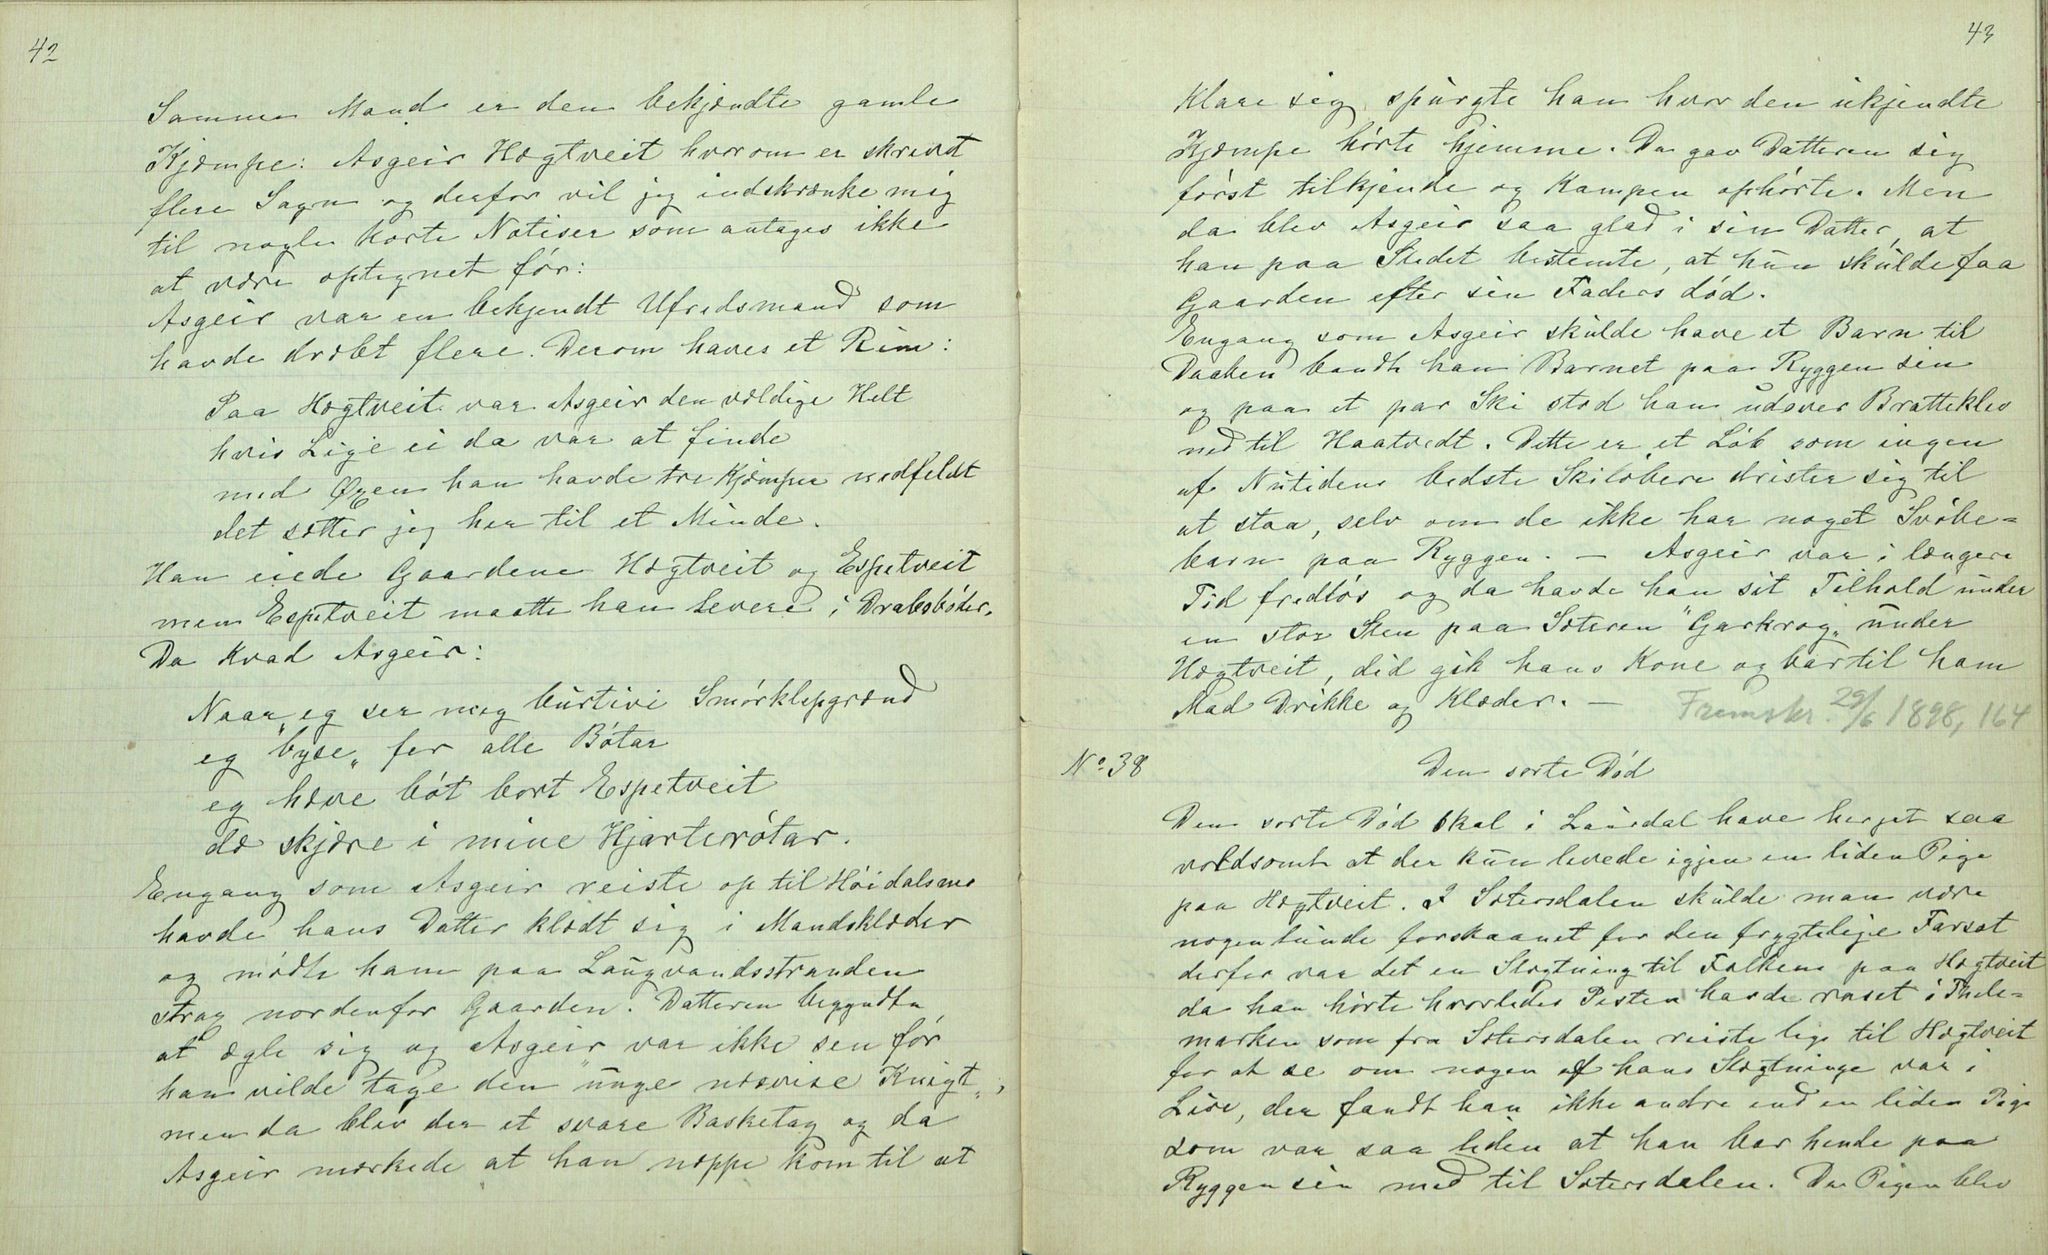 42
Samme Mand er den bekjændte gamle
Kjæmpe: Asgeir Hægtveit hvorom er skrevet
flere Sagn og derfor vil jeg indskrænke mig
til nogle korte Notiser som antages ikke
at være optegnet før:
Asgeir var en bekjendt Ufredsmand som
havde dræbt flere. Derom haves et Rim:
Paa Hægtveit var Asgeir den vældige Helt
hvis Lige ei da var at finde
med Øxen han havde tre Kjæmper nedfeldt
det sætter jeg her til et Minde.
Han eiede Gaardene Hægtveit og Espetveit
men Espetveit maatte han levere i Drabsbøter.
Da kvad Asgeir:
Naar eg ser meg burtivi Smørklepgrænd
eg "byse„ for alle Bøtar
eg hæve bøt bort Espetveit
dæ skjære i mine Hjarterøtar.
Engang som Asgeir reiste op til Høidalsmo
havde hans Datter klædt sig i Mandsklæder
og mødte ham paa Langvandsstranden
strax nordenfor Gaarden. Datteren begyndte
at ægle sig og Asgeir var ikke sen før
han vilde tage den "unge næsvise Knægt„,
men da blev der et svare Basketag og da
Asgeir mærkede at han næppe kom til at
43
klare sig, spurgte han hvor den ukjendte
Kjæmpe hørte hjemme. Da gav Datteren sig
først tilkjende og Kampen ophørte. Men
da blev Asgeir saa glad i sin Datter, at
han paa Stedet bestemte, at hun skulde faa
Gaarden efter sin Faders død.
Engang som Asgeir skulde have et Barn til
Daaben bandt han Barnet paa Ryggen sin
og paa et par Ski stod han udover Bratteklev
ned til Haatvedt. Dette er et Løb som ingen
af Nutidens bedste Skiløbere drister sig til
at staa, selv om de ikke har noget Svøbe=
barn paa Ryggen. — Asgeir var i længere
Tid fredløs og da havde han sit Tilhold under
en stor Sten paa Sæteren "Garkrog„ under
Hægtveit, did gik hans Kone og bar til ham
Mad Drikke og Klæder. —
Fremskr. 29/6 1898, 164
No. 38
Den sorte Død
Den sorte Død skal i Laurdal have herjet saa
voldsomt at der kun levede igjen en liden Pige
paa Hægtveit. I Sætersdalen skulde man være
nogenlunde forskaanet for den frygtelige Farsot
derfor var det en Slægtning til Folkene paa Hægtveit
da han hørte hvorledes Pesten havde raset i Thele=
marken som fra Sætersdalen reiste lige til Hægtveit
for at se om nogen af hans Slægtninge var i
Live, der fandt han ikke andre end en liden Pige
som var saa liden at han bar hende paa
Ryggen sin med til Sætersdalen. Da Pigen blev